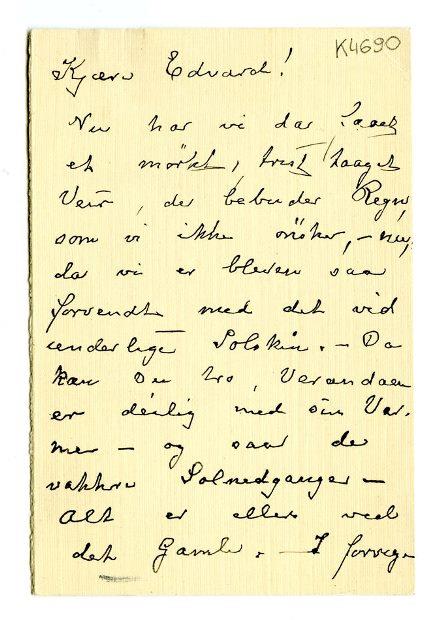 K4690
Kjære Edvard!
Nu har vi da faaet
et mörkt, trist, taaget
Veir, der bebuder Regn,
som vi ikke önsker, – nu,
da vi er bleven saa
forvendte med det vid
underlige Solskin. – Da
kan Du tro, Verandaen
er deilig med sin Var-
me – og saa de
vakkre Solnedganger –
Alt er ellers ved
det Gamle. – I forrige